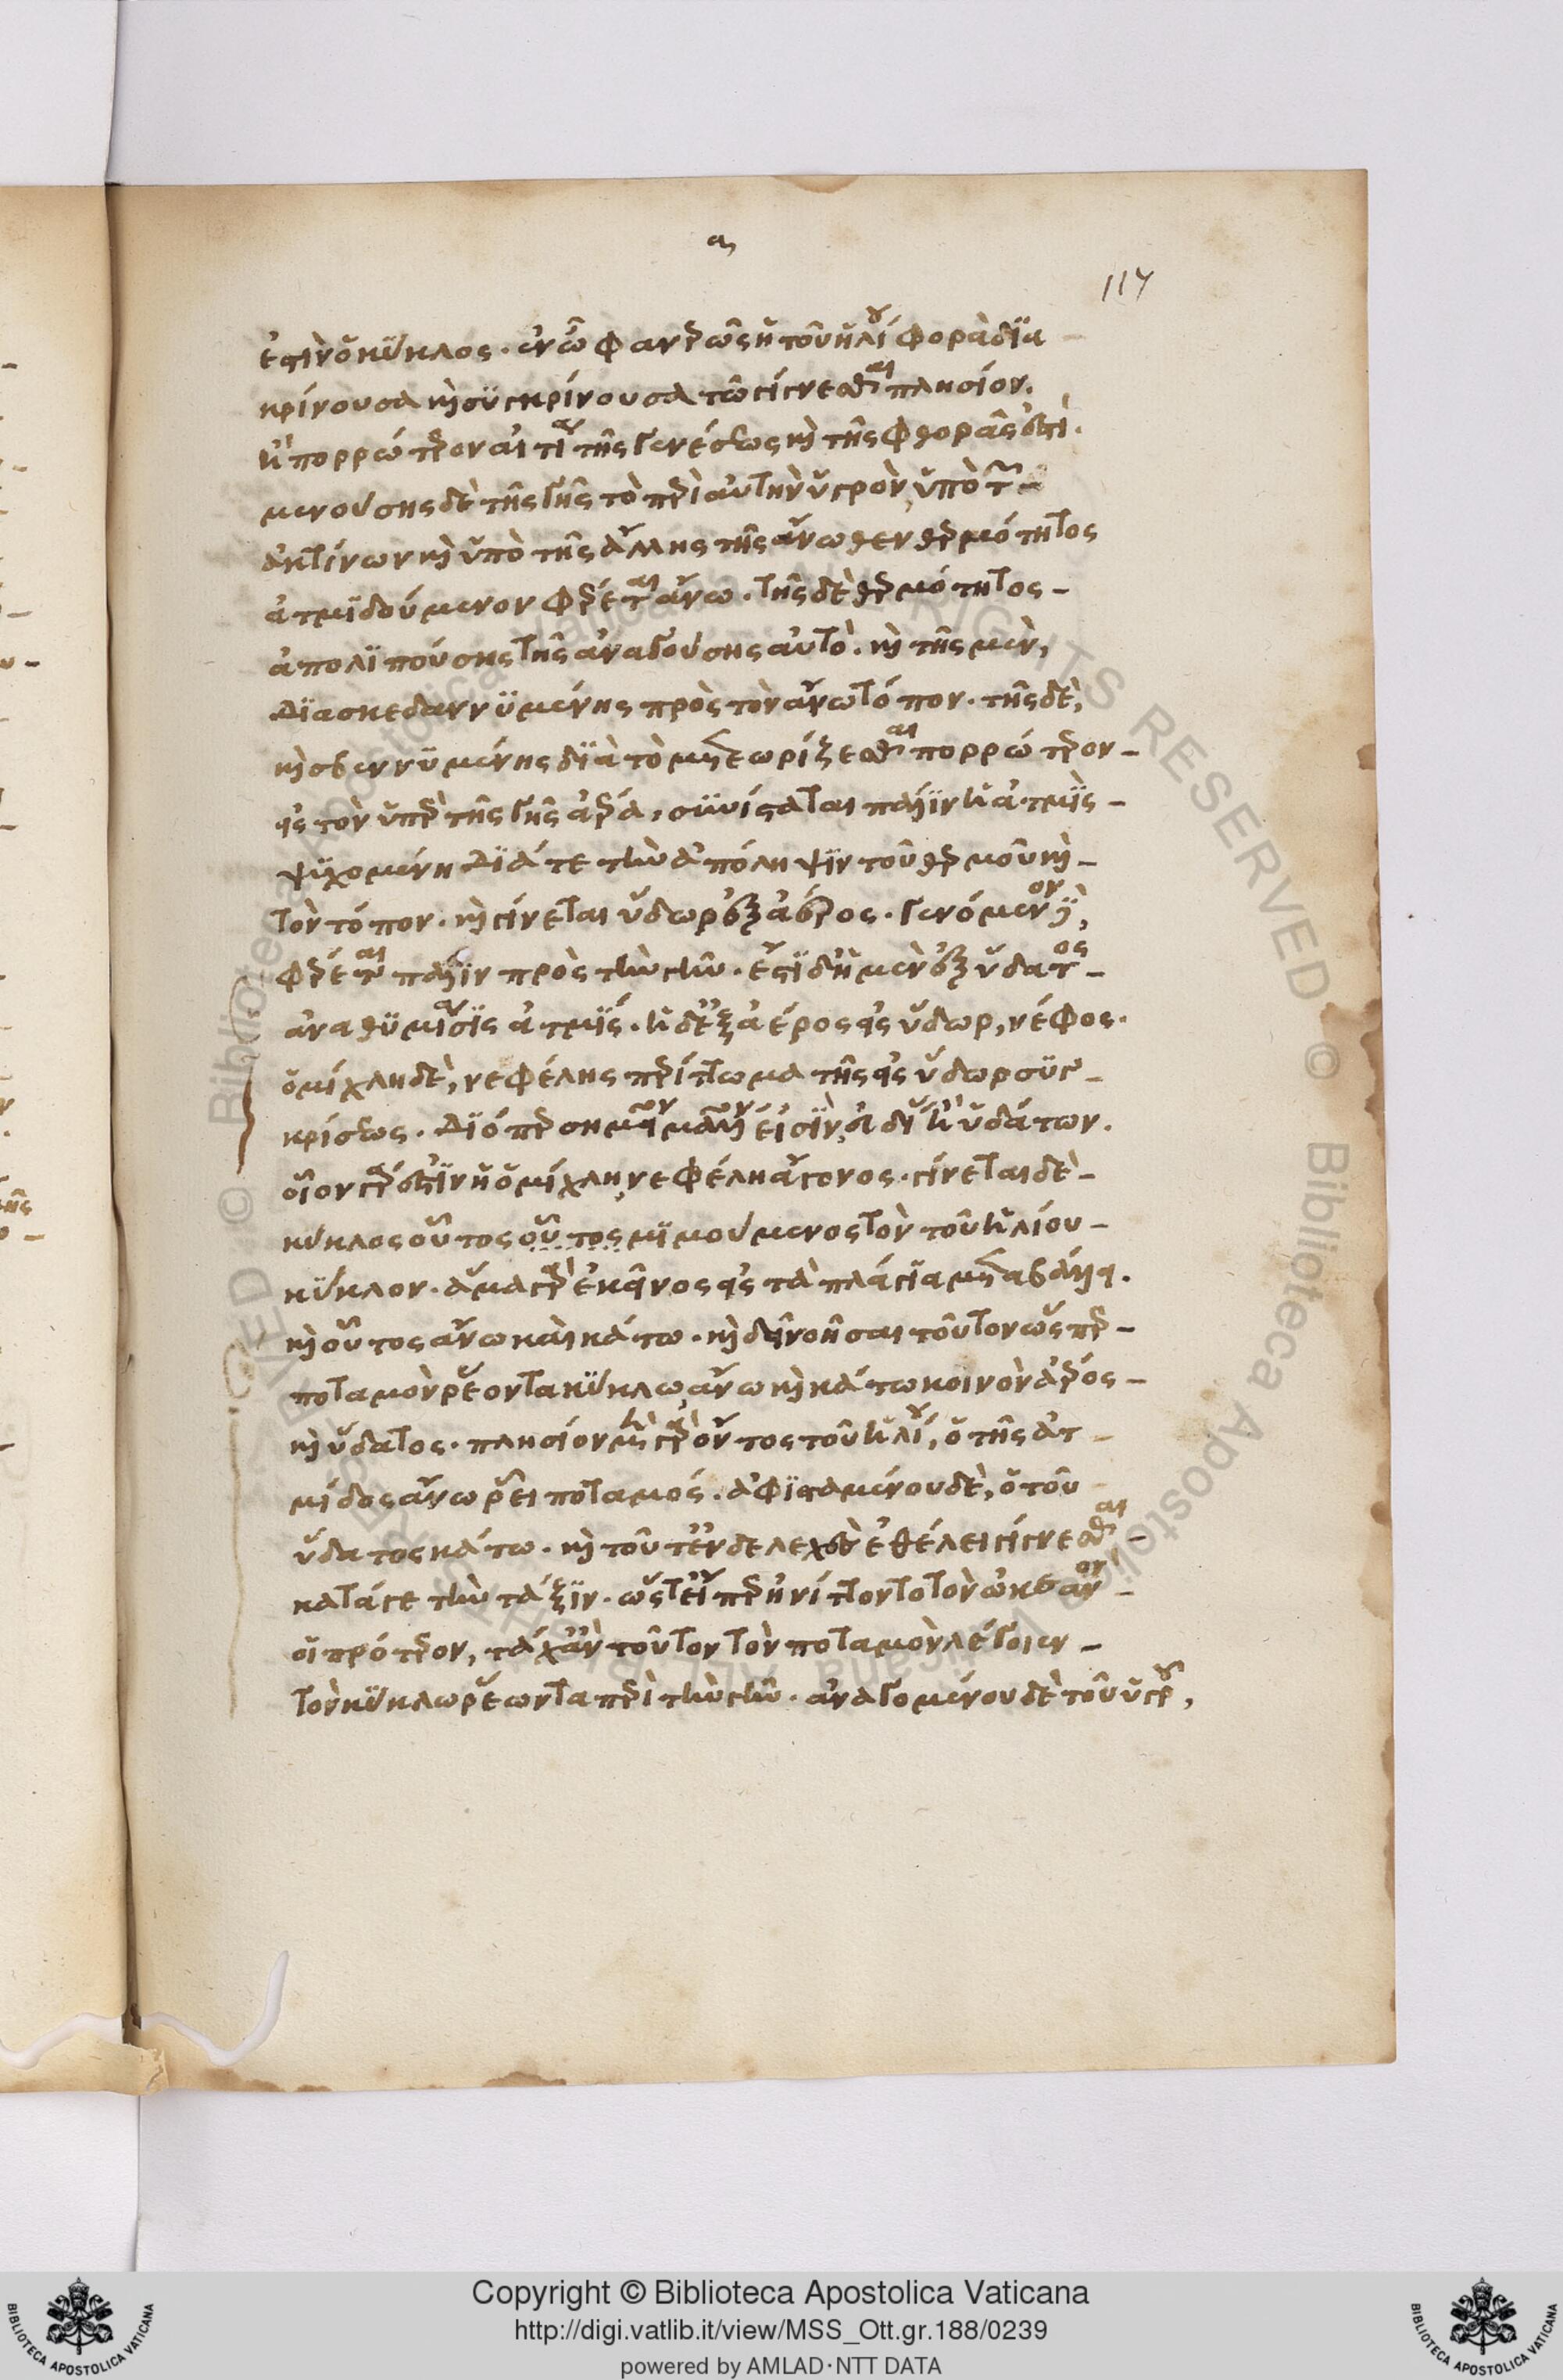 α
117
ἐστὶν ὁ κύκλος. ἐν ὧ φανερῶς ἡ τοῦ ἡλίου φορὰ δϊα
κρίνουσα καὶ συγκρίνουσα τῶ γίγνεσθαι πλησίον.
ἢ πορρώτερον αἰτία τῆς γενέσεως καὶ τῆς φθορᾶς ἐστὶ.
μενούσης δὲ τῆς γῆς τὸ περὶ αὐτὴν ὑγρὸν, ὑπὸ τῶν
ἀκτίνων καὶ ὑπὸ τῆς ἄλλης τῆς ἄνωθεν θερμότητος
ἀτμϊδούμενον φέρεται ἄνω. τῆς δὲ θερμότητος -
ἀπολϊπούσης τῆς ἀναγούσης αὐτὸ. καὶ τῆς μὲν,
δϊασκεδαννϋμένης πρὸς τὸν ἄνω τόπον. τῆς δὲ,
καὶ σβεννϋμένης δϊὰ τὸ μετεωρίζεσθαι πορρώτερον -
εἰς τὸν ὑπὲρ τῆς γῆς ἀέρα, συνίσταται πάλϊν ἡ ἀτμῒς -
ψϋχομένη δϊά τε τὴν ἀπόληψϊν τοῦ θερμοῦ καὶ -
τὸν τόπον. καὶ γίνεται ὕδωρ ἐξ ἀέρος. γενόμενον δὲ,
φέρεται πάλϊν πρὸς τὴν γῆν. ἔστϊ δ' ἡ μὲν ἐξ ὕδατος -
ἀναθϋμίασϊς ἀτμΐς. ἡ δ' ἐξ ἀέρος εἰς ὕδωρ, νέφος.
ὁμίχλη δὲ, νεφέλης περίττωμα τῆς εἰς ὕδωρ συγ -
κρίσεως. δϊὸ σημεῖον μᾶλλον ἐστὶν εὐδίας ἢ ὑδάτων.
οἷον γάρ ἐστϊν ἡ ὁμίχλη, νεφέλη ἄγονος. γίνεται δὲ -
κύκλος οὗτος οὗτος μϊμούμενος τὸν τοῦ ἡλίου -
κύκλον. ἅμα γὰρ ἐκεῖνος εἰς τὰ πλάγϊα μεταβάλλει.
καὶ οὗτος ἄνω καὶ κάτω. καὶ δεῖ νοῆσαι τοῦτον ὥσπερ -
ποταμὸν ῥέοντα κύκλω, ἄνω καὶ κάτω κοινὸν ἀέρος -
καὶ ὕδατος. πλησίον μὲν γὰρ ὄντος τοῦ ἡλίου, ὁ τῆς ἀτ -
μίδος ἄνω ῥεῖ ποταμός. ἀφϊσταμένου δὲ, ὁ τοῦ
ὕδατος κάτω. καὶ τοῦτ' ἐνδελεχὲς ἐθέλει γίγνεσθαι -
κατά γε τὴν τάξϊν. ὥστ' εἴπερ ἠνίττοντο τὸν ὠκεανὸν -
οἱ πρότερον, τάχ' ἂν τοῦτον τὸν ποταμὸν λέγοιεν -
τὸν κύκλω ῥέωντα περὶ τὴν γῆν. ἀναγομένου δὲ τοῦ ὑγροῦ,
Copyright © Biblioteca Apostolica Vaticana
http://digi.vatlib.it/view/MSS_Ott.gr.188/0239
powered by AMLAD·NTT DATA
BIBLIOTECA APOSTOLICA VATICANA
BIBLIOTECA APOSTOLICA VATICANA